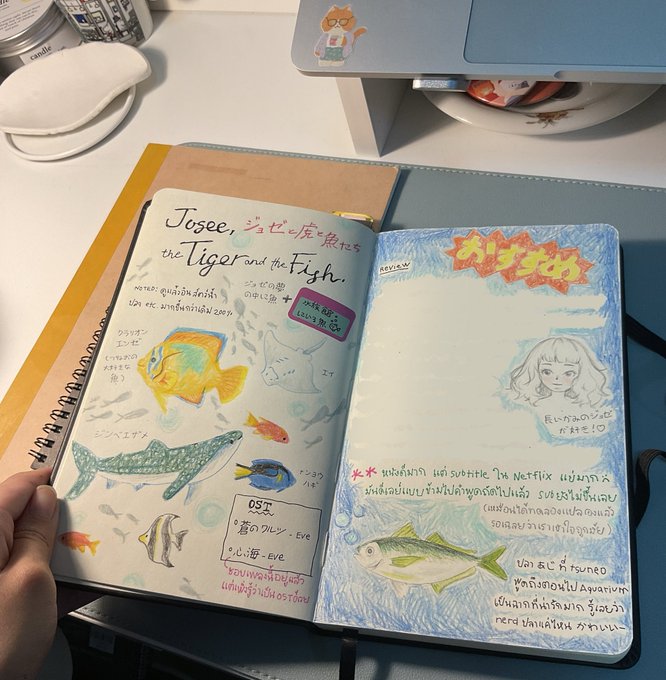 candle
Josee, ジョゼと虎と魚たち
the Tiger and the Fish.
NOTED: ดูแล้วอินสัตว์น้ำ
ปลา etc. มากขึ้นกว่าเดิม 200%
ジョゼの夢
の中に魚 +
水族館
にいる魚
クラリオン
エンゼ
(つねおの
大好きな
魚)
エイ
ジンベエザメ
ナンヨウ
ハギ
OST
蒼のワルツ - Eve
心海 - Eve
ชอบเพลงนี้อยู่แล้ว
แต่เพิ่งรู้ว่าเป็น OST เรื่อง
REVIEW
おすすめ
長いかみのジョゼ
が好き!♡
** หนังดีมาก แต่ subtitle ใน Netflix แย่มาก
มันดีเลย์แบบ ข้ามไปคำพูดถัดไปแล้ว sub ยังไม่ขึ้นเลย
(เหมือนได้ทดลองแปลเองแล้ว
รอเฉลยว่าเราเข้าใจถูกมั้ย)
ปลา あじ ที่ tsuneo
พูดถึงตอนไป Aquarium
เป็นฉากที่น่ารักมาก รู้เลยว่า
nerd ปลาแค่ไหน かわいい~